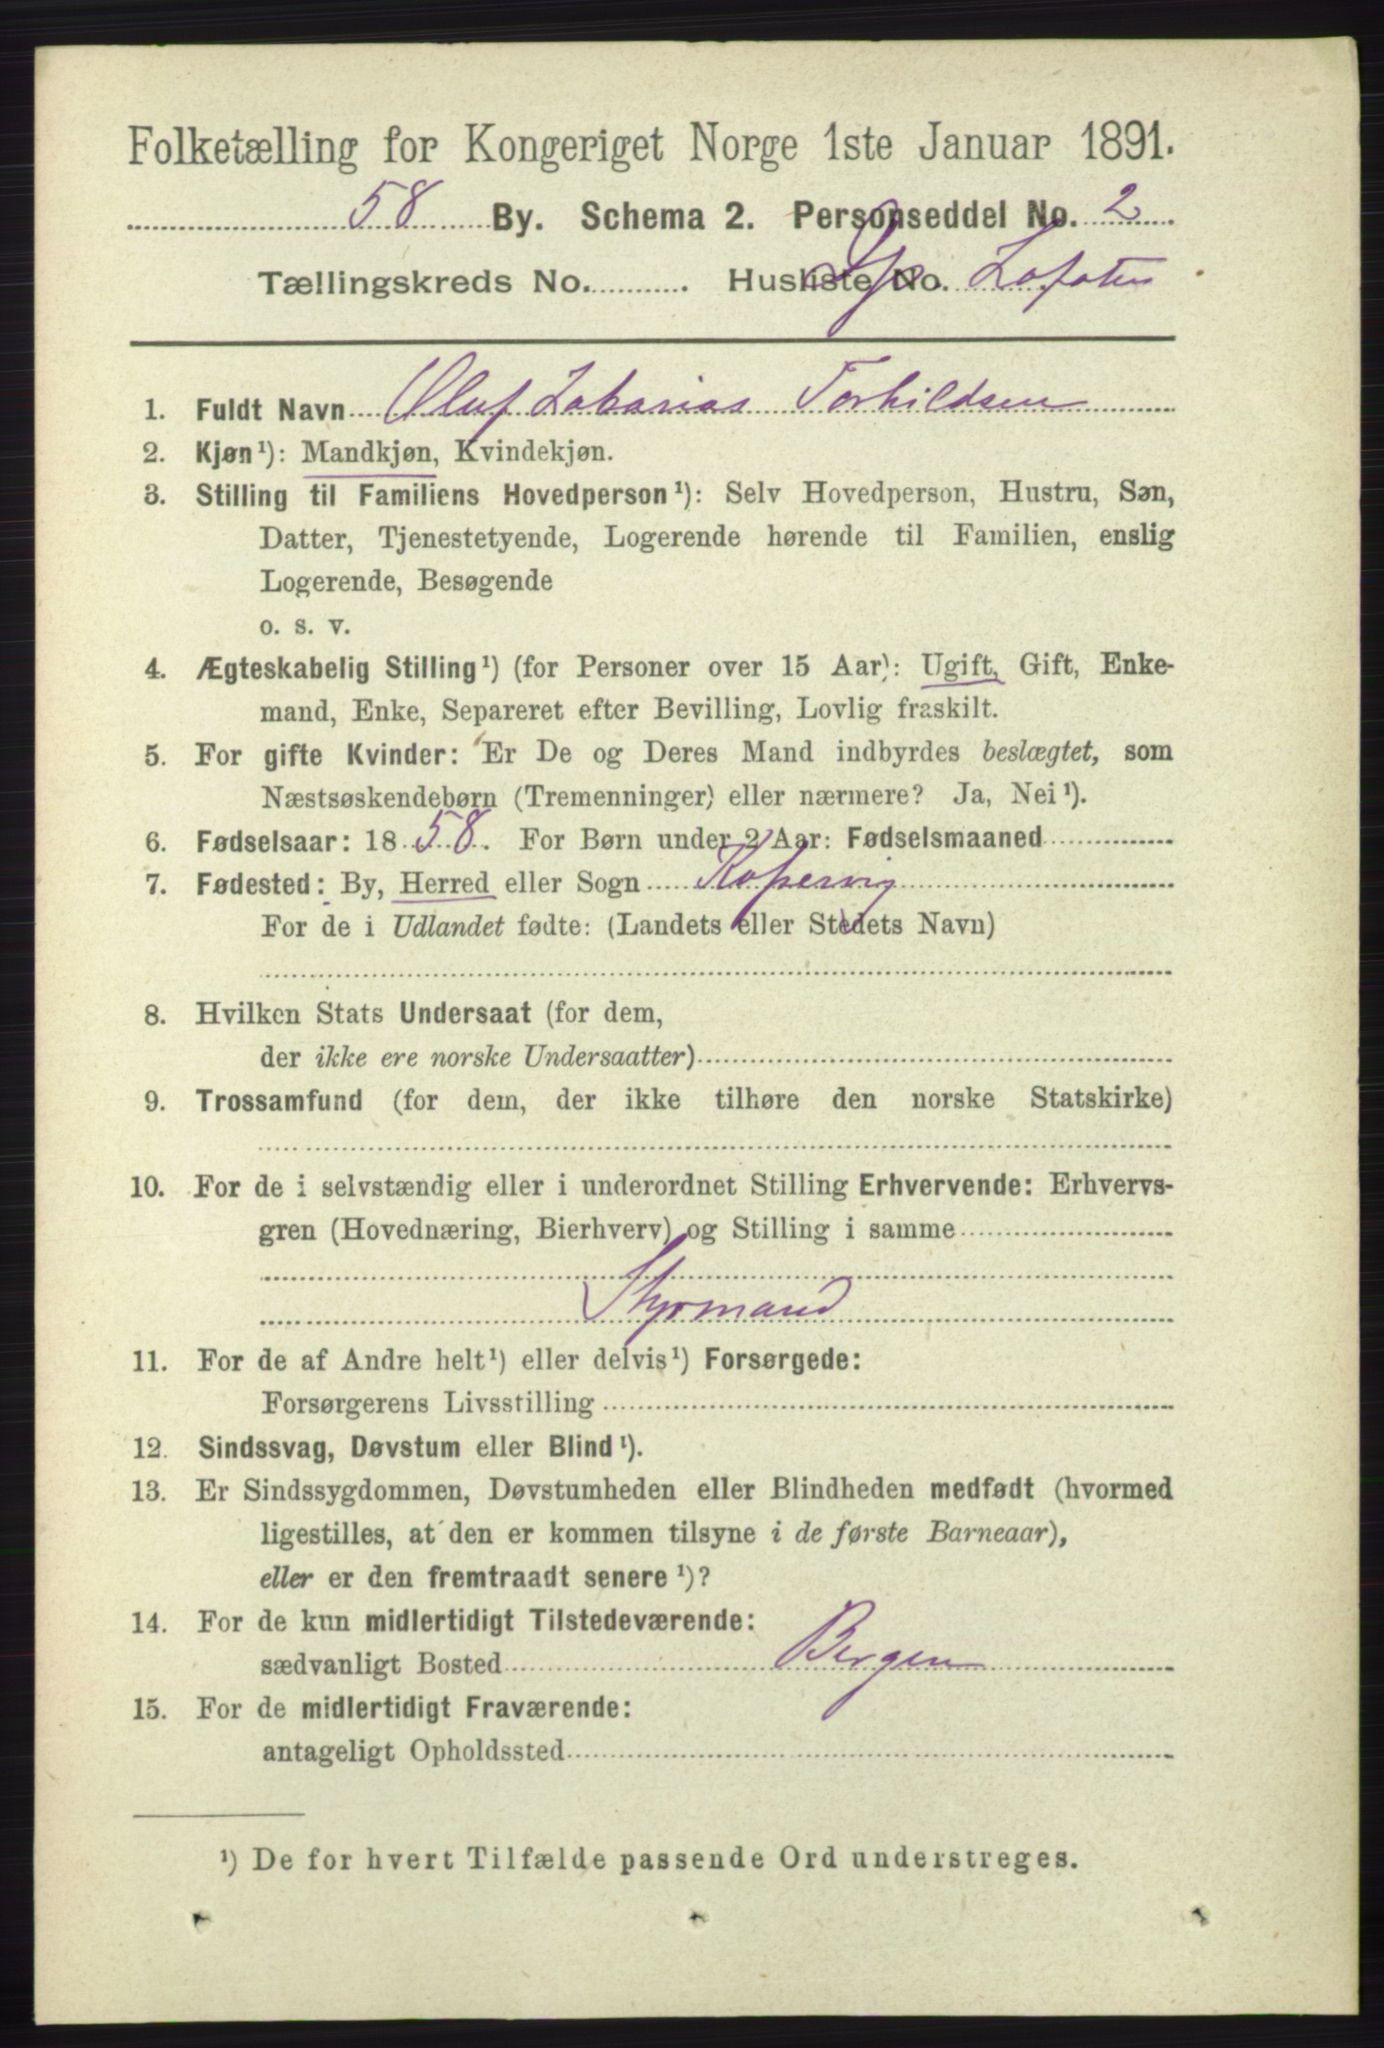 Folketælling for Kongeriget Norge 1ste Januar 1891.
58 By. Schema 2. Personseddel No. 2
Tællingskreds No. Husliste No. Lofoten
1. Fuldt Navn Oluf Zakarias Torkildsen
2. Kjøn¹): Mandkjøn, Kvindekjøn.
3. Stilling til Familiens Hovedperson¹): Selv Hovedperson, Hustru, Søn,
Datter, Tjenestetyende, Logerende hørende til Familien, enslig
Logerende, Besøgende
o. s. v.
4. Ægteskabelig Stilling¹) (for Personer over 15 Aar): Ugift, Gift, Enke-
mand, Enke, Separeret efter Bevilling, Lovlig fraskilt.
5. For gifte Kvinder: Er De og Deres Mand indbyrdes beslægtet, som
Næstsøskendebørn (Tremenninger) eller nærmere? Ja, Nei¹).
6. Fødselsaar: 1858. For Børn under 2 Aar: Fødselsmaaned
7. Fødested: By, Herred eller Sogn Kopervig
For de i Udlandet fødte: (Landets eller Stedets Navn)
8. Hvilken Stats Undersaat (for dem,
der ikke ere norske Undersaatter)
9. Trossamfund (for dem, der ikke tilhøre den norske Statskirke)
10. For de i selvstændig eller i underordnet Stilling Erhvervende: Erhvervs-
gren (Hovednæring, Bierhverv) og Stilling i samme
Styrmand
11. For de af Andre helt¹) eller delvis¹) Forsørgede:
Forsørgerens Livsstilling
12. Sindssvag, Døvstum eller Blind¹).
13. Er Sindssygdommen, Døvstumheden eller Blindheden medfødt (hvormed
ligestilles, at den er kommen tilsyne i de første Barneaar),
eller er den fremtraadt senere¹)?
14. For de kun midlertidigt Tilstedeværende:
sædvanligt Bosted Bergen
15. For de midlertidigt Fraværende:
antageligt Opholdssted
¹) De for hvert Tilfælde passende Ord understreges.